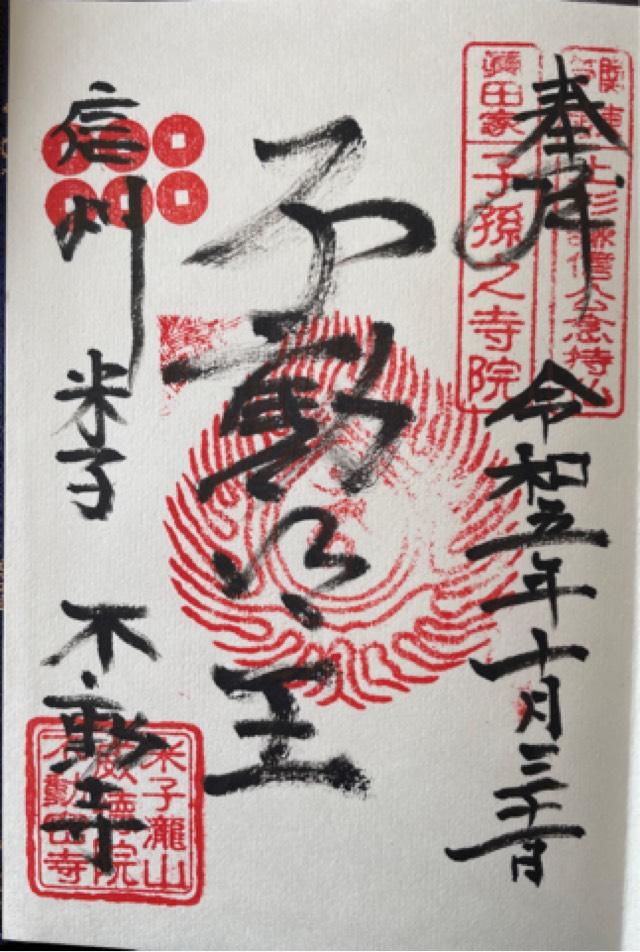 奉拝 令和五年十月三十日
上杉謙信公念持仏
眞田家 子孫之寺院
不動明王
信州 米子 不動寺
米子瀧山
威德院